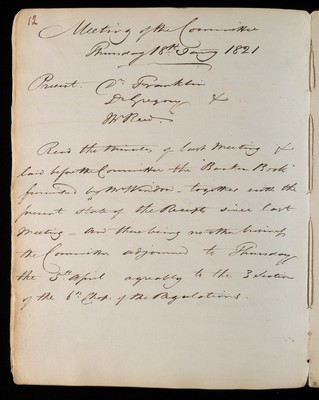 12
Meeting of the Committee
Thursday 18th Jany 1821
Present. Dr Franklin
Dr Gregory &
Mr Reed.
Read the Minutes of last Meeting &
laid before the Committee the Banker Book
furnished by Mr - together with the
present state of the Receipts since last
Meeting - and there being no other business
the Committee adjourned to Thursday
the 5th April agreably to the 3 Section
of the 6th Chap. of the Regulations.